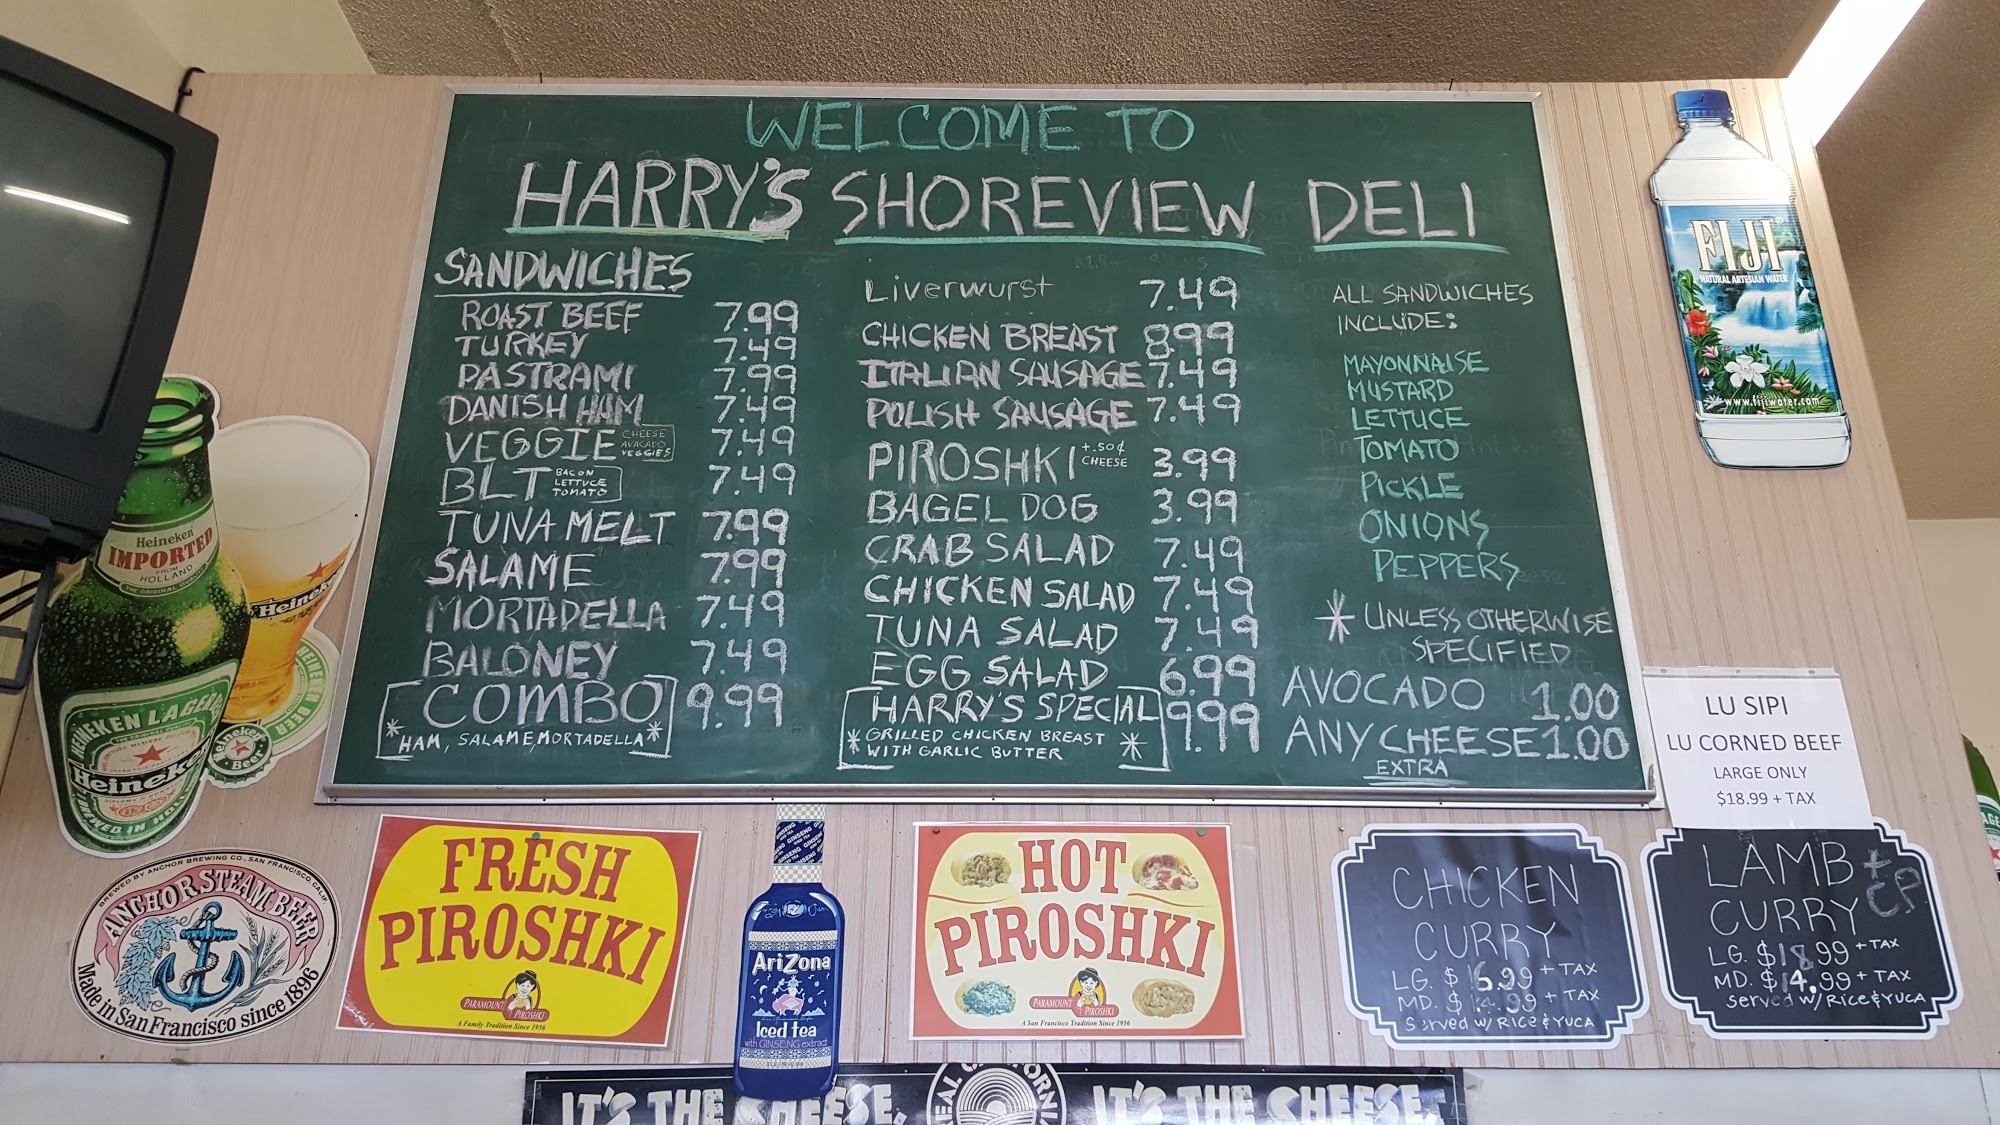 WELCOME TO
HARRY'S SHOREVIEW DELI
SANDWICHES
ROAST BEEF 7.99
TURKEY 7.49
PASTRAMI 7.99
DANISH HAM 7.49
VEGGIE CHEESE AVACADO VEGGIES 7.49
BLT BACON LETTUCE TOMATO 7.49
TUNA MELT 7.99
SALAME 7.99
MORTADELLA 7.49
BALONEY 7.49
COMBO 9.99
* HAM, SALAME, MORTADELLA *
Liverwurst 7.49
CHICKEN BREAST 8.99
ITALIAN SAUSAGE 7.49
POLISH SAUSAGE 7.49
PIROSHKI +.50¢ CHEESE 3.99
BAGEL DOG 3.99
CRAB SALAD 7.49
CHICKEN SALAD 7.49
TUNA SALAD 7.49
EGG SALAD 6.99
HARRY'S SPECIAL 9.99
* GRILLED CHICKEN BREAST
WITH GARLIC BUTTER *
ALL SANDWICHES
INCLUDE:
MAYONNAISE
MUSTARD
LETTUCE
TOMATO
PICKLE
ONIONS
PEPPERS
* UNLESS OTHERWISE
SPECIFIED
AVOCADO 1.00
ANY CHEESE 1.00
EXTRA
FIJI
NATURAL ARTESIAN WATER
www.fijiwater.com
LU SIPI
LU CORNED BEEF
LARGE ONLY
$18.99 + TAX
Heineken
IMPORTED
FROM
HOLLAND
THE ORIGINAL QUALITY
Heineken
HEINEKEN LAGER
Heineken
BREWED IN
Heineken
Beer
BREWED BY ANCHOR BREWING CO., SAN FRANCISCO, CALIF.
ANCHOR STEAM BEER
Made in San Francisco since 1896
FRESH
PIROSHKI
PARAMOUNT PIROSHKI
A Family Tradition Since 1956
GINSENG
AriZona
Iced tea
with GINSENG extract
HOT
PIROSHKI
PARAMOUNT PIROSHKI
A San Francisco Tradition Since 1956
CHICKEN
CURRY
LG. $16.99 + TAX
MD. $14.99 + TAX
Served w/ Rice & YUCA
LAMB + CP
CURRY
LG. $18.99 + TAX
MD. $14.99 + TAX
Served w/ Rice & YUCA
IT'S THE CHEESE.
REAL CALIFORNIA
IT'S THE CHEESE.